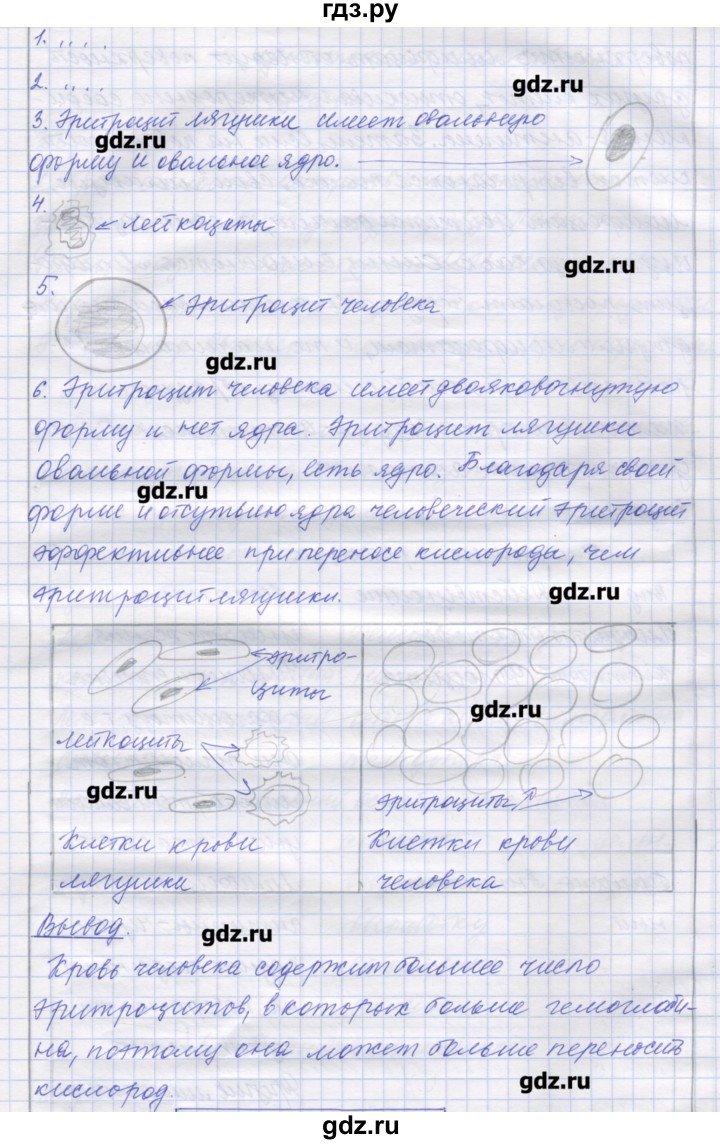 гдз.ру
1. ,, . .
2. ,, . .
gdz.ru
3. Эритроцит лягушки имеет овальную
gdz.ru
форму и овальное ядро.
4.
лейкоциты
gdz.ru
5.
Эритроцит человека
gdz.ru
6. Эритроцит человека имеет двояковогнутую
форму и нет ядра. Эритроцит лягушки
овальной формы, есть ядро. Благодаря своей
gdz.ru
форме и отсутвию ядра человеческий эритроцит
эффективнее при переносе кислорода, чем
gdz.ru
эритроцит лягушки.
эритро-
циты
gdz.ru
лейкоциты
gdz.ru
эритроциты
Клетки крови
лягушки
Клетки крови
человека
Вывод.
gdz.ru
Кровь человека содержит большее число
эритроцитов, в которых больше гемоглоби-
на, поэтому она может больше переносить
кислород.
gdz.ru
gdz.ru